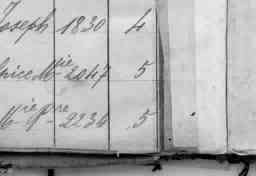 Joseph 1830 4
spice Mie 2047 5
Miegre 2236 5